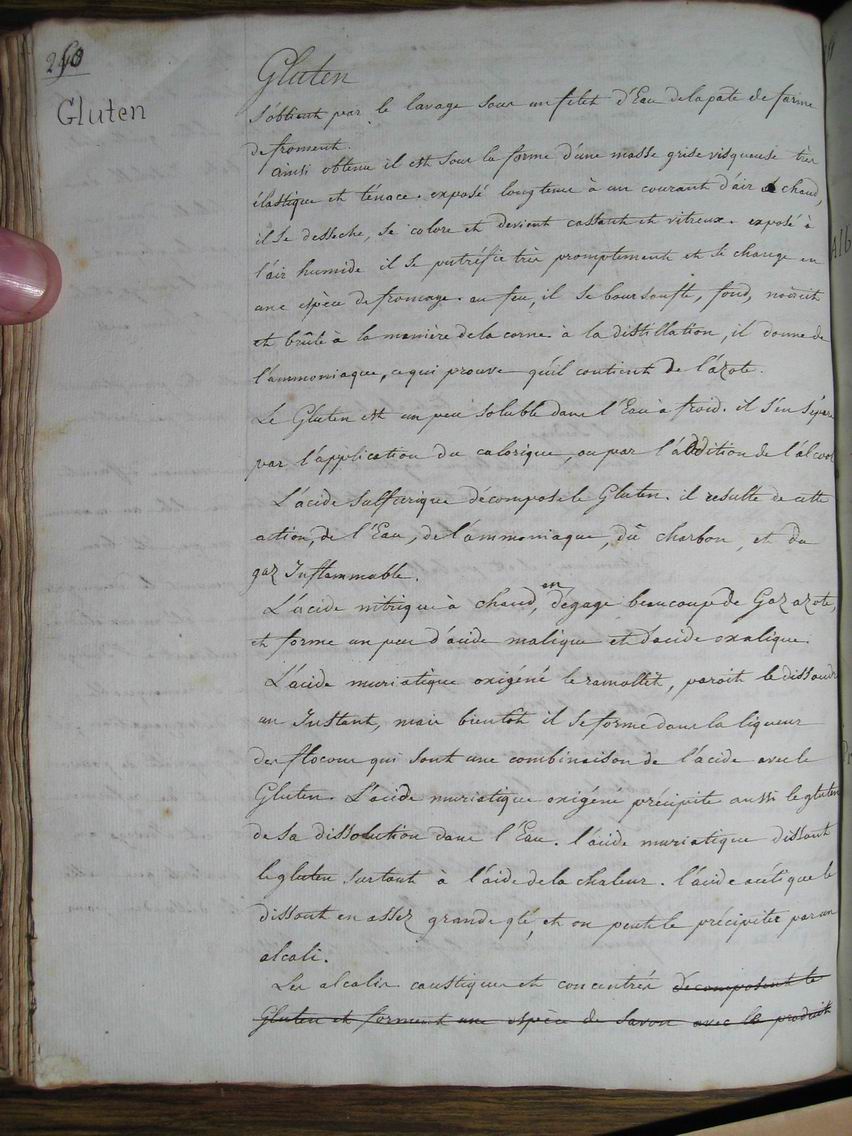 250
Gluten
Gluten
s'obtient par le lavage sous un filet d'Eau de la pate de farine
de froment.
Ainsi obtenu il est sous la forme d'une masse grise visqueuse très
élastique et ténace. exposé longtems à un courant d'air chaud,
il se desseche, se colore et devient cassant et vitreux. exposé à
l'air humide il se putréfie très promptement et se change en
une espèce de fromage. au feu, il se boursoufle, fond, noircit
et brûle à la manière de la corne à la distillation, il donne de
l'ammoniaque, ce qui prouve qu'il contient de l'azote.
Le Gluten est un peu soluble dans l'Eau à froid. il s'en sépare
par l'application du calorique, ou par l'addition de l'alcool
L'acide sulfurique décompose le Gluten. il resulte de cette
action, de l'Eau, de l'ammoniaque, du charbon, et du
gaz Inflammable.
L'acide nitrique à chaud, en dégage beaucoup de Gaz azote,
et forme un peu d'acide malique et d'acide oxalique.
L'acide muriatique oxigéné le ramollit, paroit le dissoudre
un Instant, mais bientôt il se forme dans la liqueur
des flocons qui sont une combinaison de l'acide avec le
Gluten. L'acide muriatique oxigéné précipite aussi le gluten
de sa dissolution dans l'Eau. l'acide muriatique dissout
le gluten surtout à l'aide de la chaleur. l'acide acétique le
dissout en assez grande qté, et on peut le précipiter par un
alcali.
Les alcalis caustiques et concentrés decomposent le
Gluten et forment une espèce de savon avec le produit